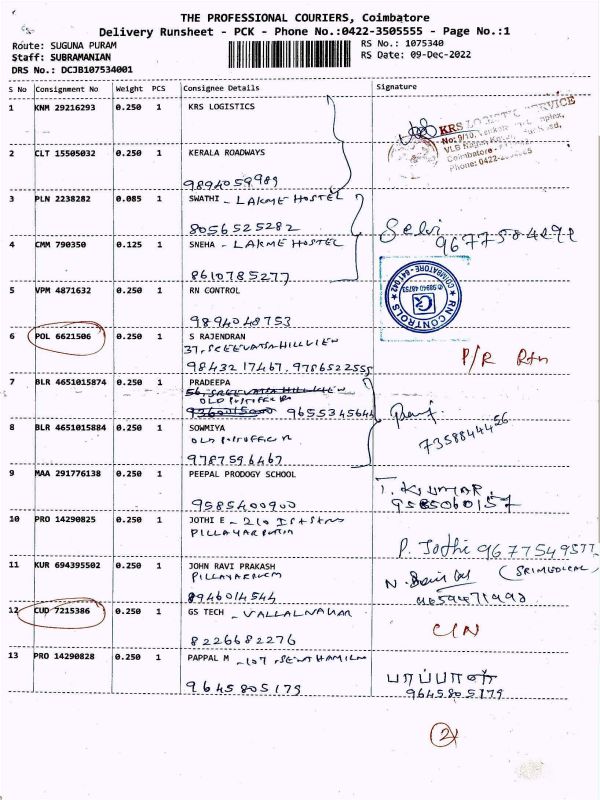 THE PROFESSIONAL COURIERS, Coimbatore
Delivery Runsheet - PCK - Phone No.:0422-3505555 - Page No.:1
Route: SUGUNA PURAM
RS No.: 1075340
Staff: SUBRAMANIAN
RS Date: 09-Dec-2022
DRS No.: DCJB107534001
S No Consignment No Weight PCS Consignee Details Signature
1 KNM 29216293 0.250 1 KRS LOGISTICS
KRS LOGISTIC SERVICE
Coimbatore
Phone: 0422-
2 CLT 15505032 0.250 1 KERALA ROADWAYS
9894059989
3 PLN 2238282 0.085 1 SWATHI - LAKME HOSTEL
8056525282
Selvi
4 CMM 790350 0.125 1 SNEHA - LAKME HOSTEL
8610785277
5 VPM 4871632 0.250 1 RN CONTROL
9894048753
RN CONTROLS
COIMBATORE - 641 042
6 POL 6621506 0.250 1 S RAJENDRAN
37, SREEVATSA HILLVIEW
98432 17467. 9786522555
P/R Rtn
7 BLR 4651015874 0.250 1 PRADEEPA
56, SREEVATSA HILLVIEW
9655345644
7358844456
8 BLR 4651015884 0.250 1 SOWMIYA
9787596467
9 MAA 291776138 0.250 1 PEEPAL PRODOGY SCHOOL
9585400900
T. KUMAR.
9585060157
10 PRO 14290825 0.250 1 JOTHI E - 210
P. Jothi 9677549577
11 KUR 694395502 0.250 1 JOHN RAVI PRAKASH
PILLAYARPURM
8946014544
(SRI MEDICAL)
12 CUD 7215386 0.250 1 GS TECH - VALLALNAGAR
8226682276
C/N
13 PRO 14290828 0.250 1 PAPPAL M - 107,
9645805179
பாப்பாள்
9645805179
2